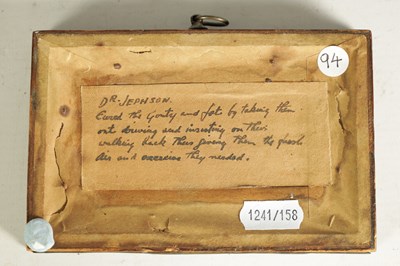 94
DR. JEPHSON.
Cured the Gouty and fat by taking them
out driving and insisting on their
walking back thus giving them the fresh
Air and exercise they needed.
1241/158